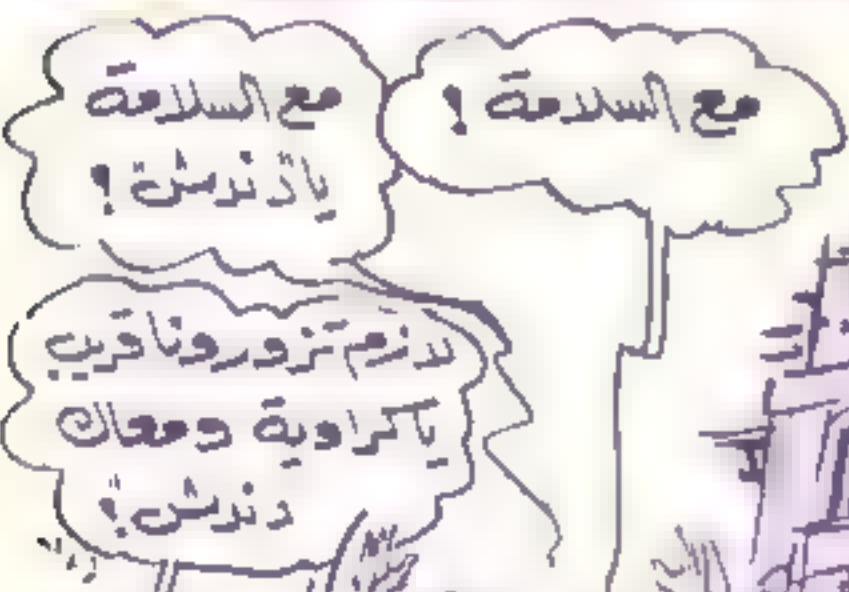 مع السلامة !
مع السلامة
يا دندش !
لازم تزورونا قريب
يا كراوية ومعاك
دندش !